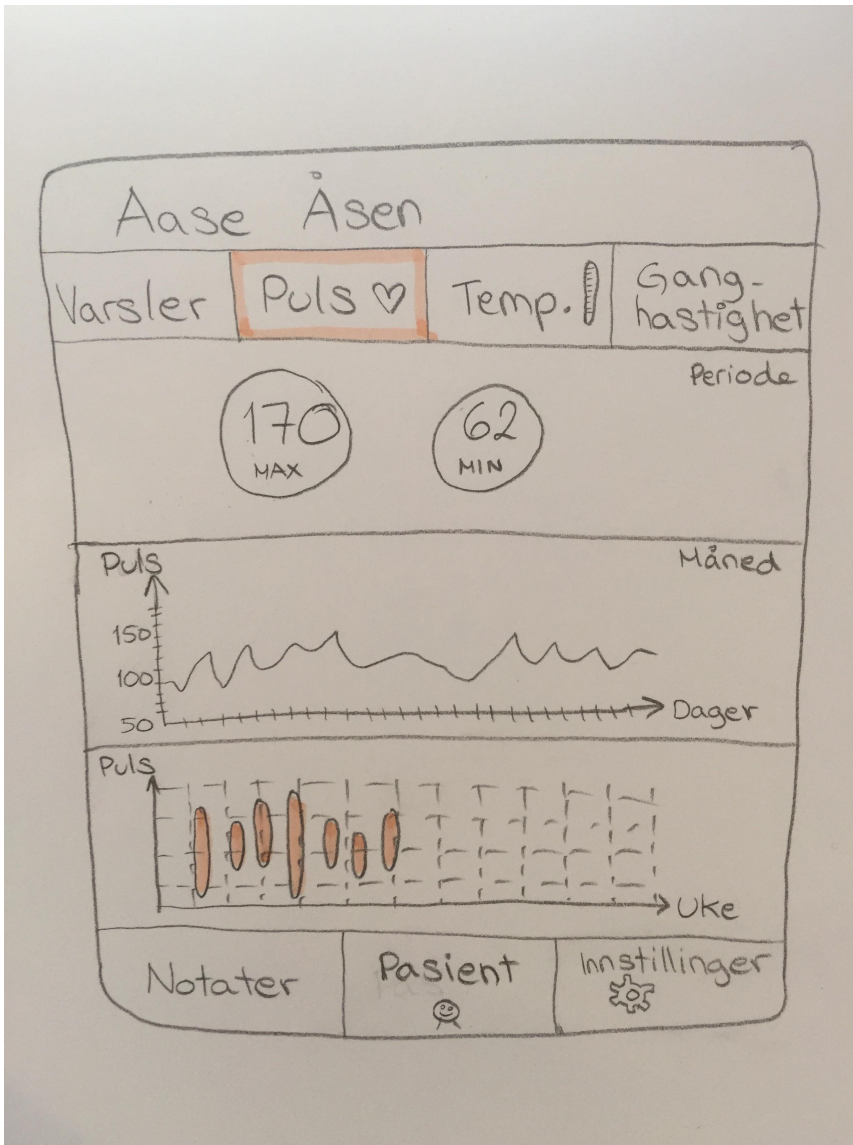 Aase Åsen
Varsler
Puls
Temp.
Gang-
hastighet
Periode
170
MAX
62
MIN
Puls
Måned
150
100
50
Dager
Puls
Uke
Notater
Pasient
Innstillinger